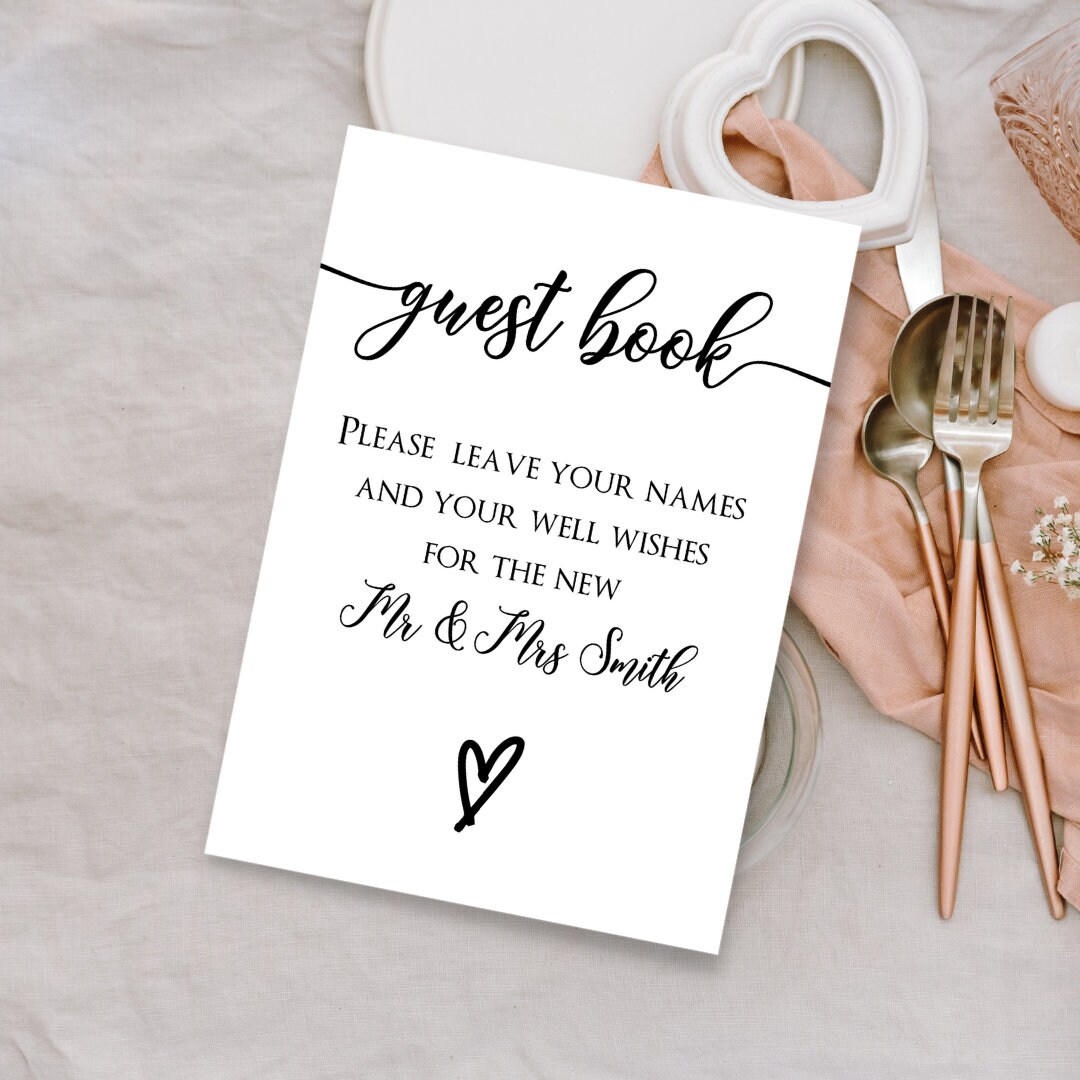 guest book
Please leave your names
and your well wishes
for the new
Mr & Mrs Smith